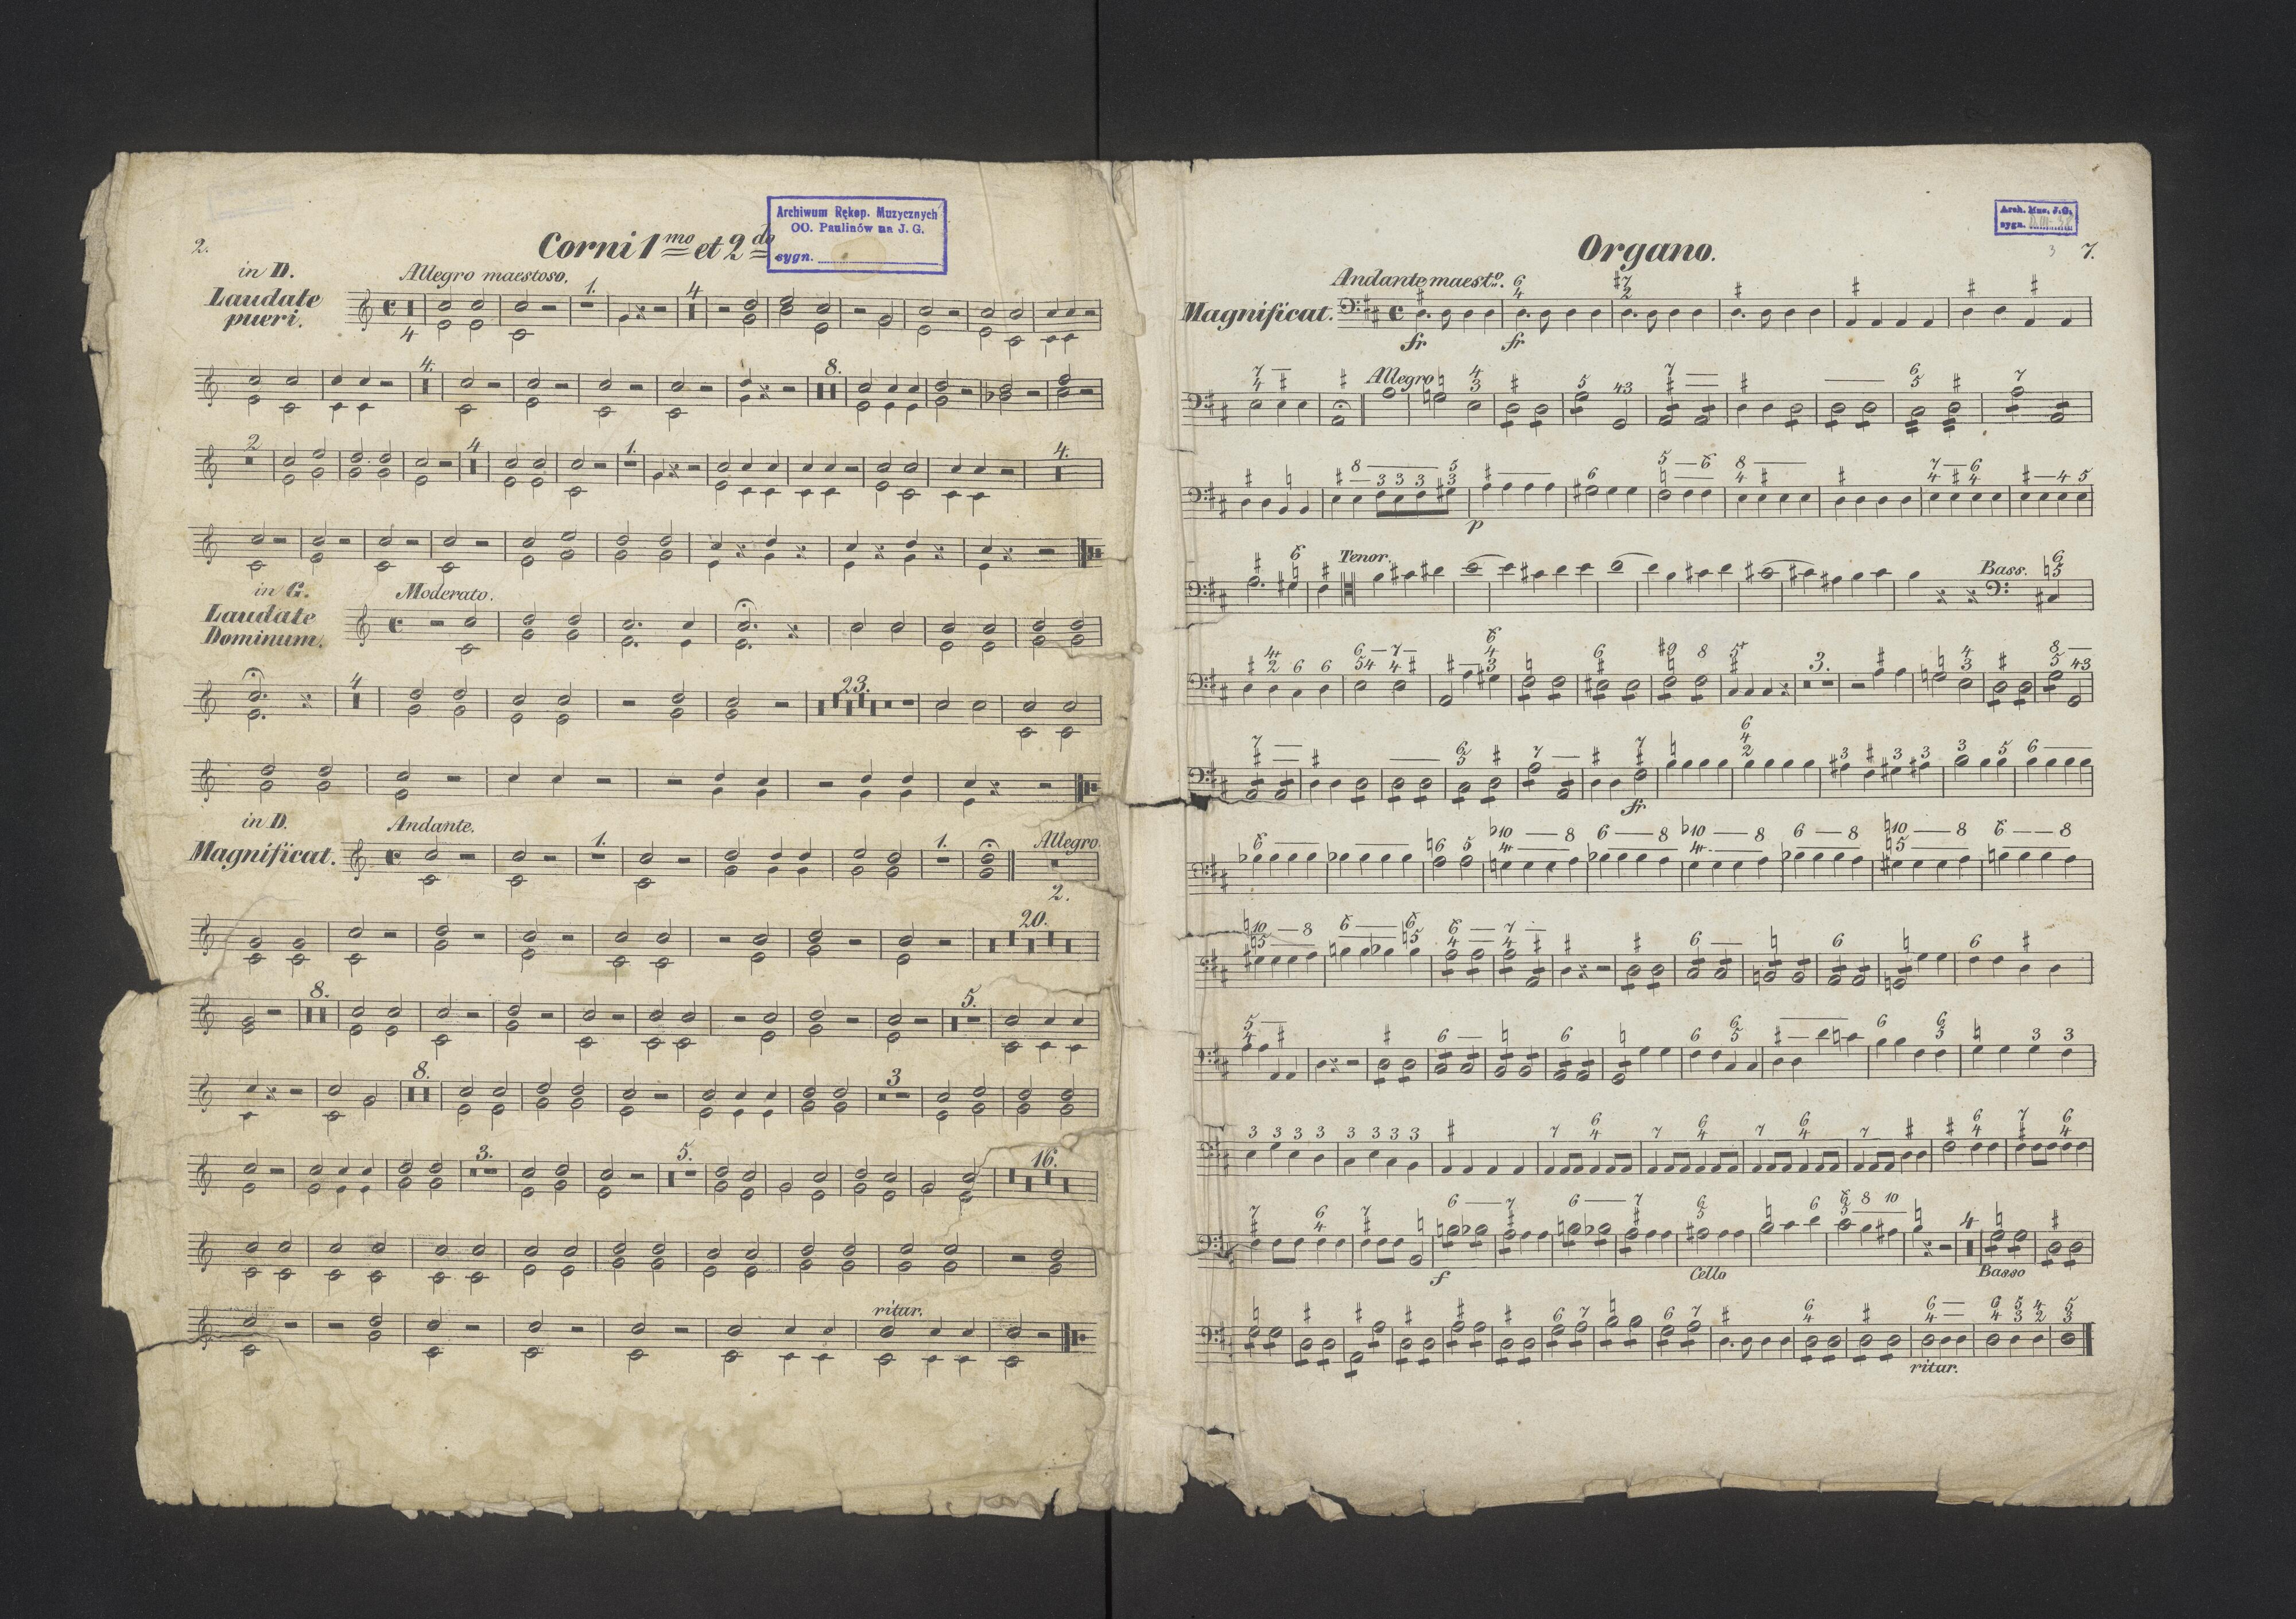 2.
Corni 1mo et 2do
Archiwum Rękop. Muzycznych
OO. Paulinów na J. G.
sygn.
in D.
Allegro maestoso.
Laudate
pueri.
4
1.
4
4.
8.
2
4
1.
4.
in G.
Moderato.
Laudate
Dominum.
4
23.
in D.
Andante.
Magnificat.
1.
1.
Allegro
2.
20.
8.
5.
8.
3
3.
5.
16.
ritar.
Arch. Muz. J.G.
sygn.
3
7.
Organo.
Andante maesto.
Magnificat.
fr
fr
Allegro
p
Tenor.
Bass.
3.
fr
4
f
Cello
Basso
ritar.